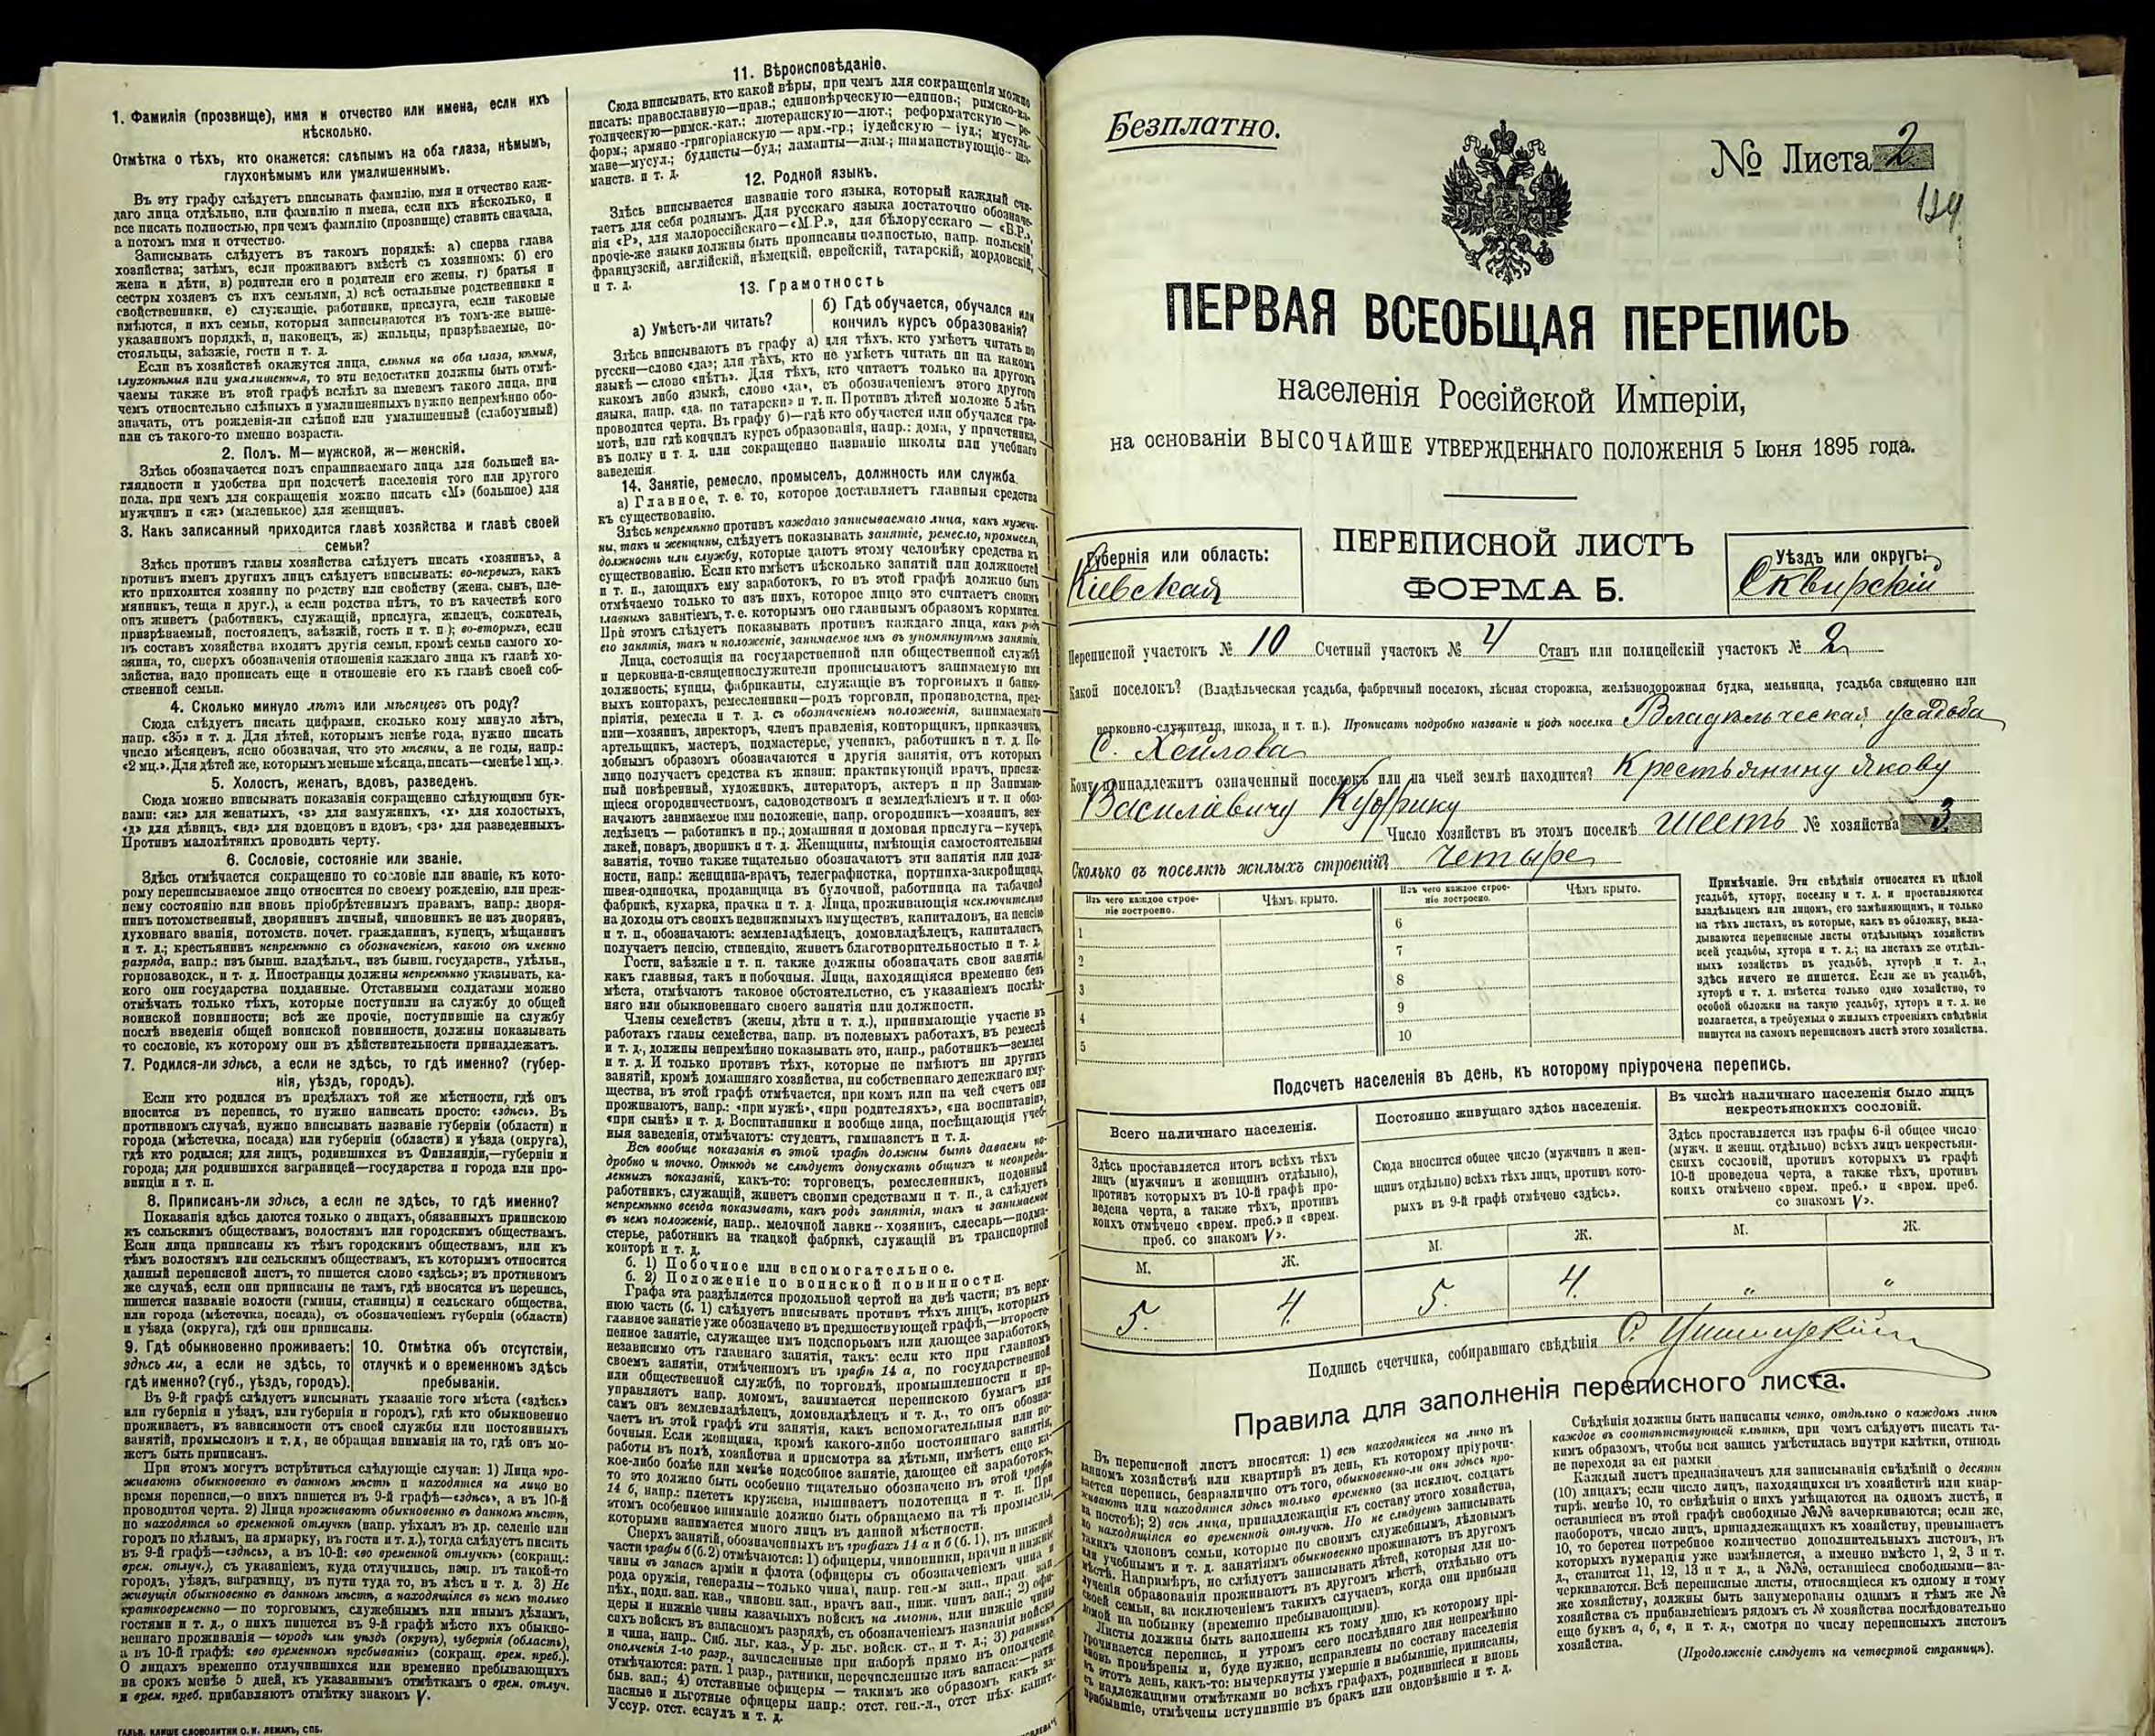 1. Фамилія (прозвище), имя и отчество или имена, если ихъ
нѣсколько.
Отмѣтка о тѣхъ, кто окажется: слѣпымъ на оба глаза, нѣмымъ,
глухонѣмымъ или умалишеннымъ.
Въ эту графу слѣдуетъ вписывать фамилію, имя и отчество каж-
даго лица отдѣльно, или фамилію и имена, если ихъ нѣсколько, и
все писать полностью, при чемъ фамилію (прозвище) ставить сначала,
а потомъ имя и отчество.
Записывать слѣдуетъ въ такомъ порядкѣ: а) сперва глава
хозяйства; затѣмъ, если проживаютъ вмѣстѣ съ хозяиномъ: б) его
жена и дѣти, в) родители его и родители его жены, г) братья и
сестры хозяевъ съ ихъ семьями, д) всѣ остальные родственники и
свойственники, е) служащіе, работники, прислуга, если таковые
имѣются, и ихъ семьи, которыя записываются въ томъ-же выше-
указанномъ порядкѣ, и, наконецъ, ж) жильцы, призрѣваемые, по-
стояльцы, заѣзжіе, гости и т. п.
Если въ хозяйствѣ окажутся лица, слѣпыя на оба глаза, нѣмыя,
глухонѣмыя или умалишенныя, то эти недостатки должны быть отмѣ-
чаемы также въ этой графѣ вслѣдъ за именемъ такого лица, при
чемъ относительно слѣпыхъ и умалишенныхъ нужно непремѣнно обо-
значать, отъ рожденія-ли слѣпой или умалишенный (слабоумный)
или съ такого-то именно возраста.
2. Полъ. М—мужской, ж—женскій.
Здѣсь обозначается полъ спрашиваемаго лица для большей на-
глядности и удобства при подсчетѣ населенія того или другого
пола, при чемъ для сокращенія можно писать «М» (большое) для
мужчинъ и «ж» (маленькое) для женщинъ.
3. Какъ записанный приходится главѣ хозяйства и главѣ своей
семьи?
Здѣсь противъ главы хозяйства слѣдуетъ писать «хозяинъ», а
противъ именъ другихъ лицъ слѣдуетъ вписывать: во-первыхъ, какъ
кто приходится хозяину по родству или свойству (жена, сынъ, пле-
мянникъ, теща и друг.), а если родства нѣтъ, то въ качествѣ кого
онъ живетъ (работникъ, служащій, прислуга, жилецъ, сожитель,
призрѣваемый, постоялецъ, заѣзжій, гость и т. п.); во-вторыхъ, если
въ составъ хозяйства входятъ другія семьи, кромѣ семьи самого хо-
зяина, то, сверхъ обозначенія отношенія каждаго лица къ главѣ хо-
зяйства, надо прописать еще и отношеніе его къ главѣ своей соб-
ственной семьи.
4. Сколько минуло лѣтъ или мѣсяцевъ отъ роду?
Сюда слѣдуетъ писать цифрами, сколько кому минуло лѣтъ,
напр. «35» и т. д. Для дѣтей, которымъ менѣе года, нужно писать
число мѣсяцевъ, ясно обозначая, что это мѣсяцы, а не годы, напр.:
«2 мц.». Для дѣтей же, которымъ меньше мѣсяца, писать—«менѣе 1 мц.».
5. Холостъ, женатъ, вдовъ, разведенъ.
Сюда можно вписывать показанія сокращенно слѣдующими бук-
вами: «ж» для женатыхъ, «з» для замужнихъ, «х» для холостыхъ,
«д» для дѣвицъ, «вд» для вдовцовъ и вдовъ, «рз» для разведенныхъ.
Противъ малолѣтнихъ проводить черту.
6. Сословіе, состояніе или званіе.
Здѣсь отмѣчается сокращенно то сословіе или званіе, къ кото-
рому переписываемое лицо относится по своему рожденію, или преж-
нему состоянію или вновь пріобрѣтеннымъ правамъ, напр.: дворя-
нинъ потомственный, дворянинъ личный, чиновникъ не изъ дворянъ,
духовнаго званія, потомств. почет. гражданинъ, купецъ, мѣщанинъ
и т. д.; крестьянинъ непремѣнно съ обозначеніемъ, какого онъ именно
разряда, напр.: изъ бывш. владѣльч., изъ бывш. государств., удѣльн.,
горнозаводск., и т. д. Иностранцы должны непремѣнно указывать, ка-
кого они государства подданные. Отставными солдатами можно
отмѣчать только тѣхъ, которые поступили на службу до общей
воинской повинности; всѣ же прочіе, поступившіе на службу
послѣ введенія общей воинской повинности, должны показывать
то сословіе, къ которому они въ дѣйствительности принадлежатъ.
7. Родился-ли здѣсь, а если не здѣсь, то гдѣ именно? (губер-
нія, уѣздъ, городъ).
Если кто родился въ предѣлахъ той же мѣстности, гдѣ онъ
вносится въ перепись, то нужно написать просто: «здѣсь». Въ
противномъ случаѣ, нужно вписывать названіе губерніи (области) и
города (мѣстечка, посада) или губерніи (области) и уѣзда (округа),
гдѣ кто родился; для лицъ, родившихся въ Финляндіи,—губерніи и
города; для родившихся заграницей—государства и города или про-
винціи и т. п.
8. Приписанъ-ли здѣсь, а если не здѣсь, то гдѣ именно?
Показанія здѣсь даются только о лицахъ, обязанныхъ припискою
къ сельскимъ обществамъ, волостямъ или городскимъ обществамъ.
Если лица приписаны къ тѣмъ городскимъ обществамъ, или къ
тѣмъ волостямъ или сельскимъ обществамъ, къ которымъ относится
данный переписной листъ, то пишется слово «здѣсь»; въ противномъ
же случаѣ, если они приписаны не тамъ, гдѣ вносятся въ перепись,
пишется названіе волости (гмины, станицы) и сельскаго общества,
или города (мѣстечка, посада), съ обозначеніемъ губерніи (области)
и уѣзда (округа), гдѣ они приписаны.
9. Гдѣ обыкновенно проживаетъ:
здѣсь ли, а если не здѣсь, то
гдѣ именно? (губ., уѣздъ, городъ).
10. Отмѣтка объ отсутствіи,
отлучкѣ и о временномъ здѣсь
пребываніи.
Въ 9-й графѣ слѣдуетъ вписывать указаніе того мѣста («здѣсь»
или губернія и уѣздъ, или губернія и городъ), гдѣ кто обыкновенно
проживаетъ, въ зависимости отъ своей службы или постоянныхъ
занятій, промысловъ и т. д., не обращая вниманія на то, гдѣ онъ мо-
жетъ быть приписанъ.
При этомъ могутъ встрѣтиться слѣдующіе случаи: 1) Лица про-
живаютъ обыкновенно въ данномъ мѣстѣ и находятся на лицо во
время переписи,—о нихъ пишется въ 9-й графѣ—«здѣсь», а въ 10-й
проводится черта. 2) Лица проживаютъ обыкновенно въ данномъ мѣстѣ,
но находятся во временной отлучкѣ (напр. уѣхалъ въ др. селеніе или
городъ по дѣламъ, на ярмарку, въ гости и т. д.), тогда слѣдуетъ писать
въ 9-й графѣ—«здѣсь», а въ 10-й: «во временной отлучкѣ» (сокращ.:
врем. отлуч.), съ указаніемъ, куда отлучились, напр. въ такой-то
городъ, уѣздъ, заграницу, въ пути туда то, въ лѣсъ и т. д. 3) Не
живущія обыкновенно въ данномъ мѣстѣ, а находящіяся въ немъ только
кратковременно — по торговымъ, служебнымъ или инымъ дѣламъ,
гостями и т. д., о нихъ пишется въ 9-й графѣ мѣсто ихъ обыкно-
веннаго проживанія — городъ или уѣздъ (округъ), губернія (область),
а въ 10-й графѣ: «во временномъ пребываніи» (сокращ. врем. преб.).
О лицахъ временно отлучившихся или временно пребывающихъ
на срокъ менѣе 5 дней, къ указаннымъ отмѣткамъ о врем. отлуч.
и врем. преб. прибавляютъ отмѣтку знакомъ V.
ГАЛЬВ. КЛИШЕ СЛОВОЛИТНИ О. И. ЛЕМАНЪ, СПБ.
11. Вѣроисповѣданіе.
Сюда вписывать, кто какой вѣры, при чемъ для сокращенія можно
писать: православную—прав.; единовѣрческую—единов.; римско-ка-
толическую—римск.-кат.; лютеранскую—лют.; реформатскую—ре-
форм.; армяно-григоріанскую — арм.-гр.; іудейскую — іуд.; мусуль-
мане—мусул.; буддисты—буд.; ламаиты—лам.; шаманствующіе—ша-
манств. и т. д.
12. Родной языкъ.
Здѣсь вписывается названіе того языка, который каждый счи-
таетъ для себя роднымъ. Для русскаго языка достаточно обозначе-
нія «Р», для малороссійскаго—«М.Р.», для бѣлорусскаго — «Б.Р.»,
прочіе-же языки должны быть прописаны полностью, напр. польскій,
французскій, англійскій, нѣмецкій, еврейскій, татарскій, мордовскій,
и т. д.
13. Грамотность
а) Умѣетъ-ли читать?
б) Гдѣ обучается, обучался или
кончилъ курсъ образованія?
Здѣсь вписываютъ въ графу а) для тѣхъ, кто умѣетъ читать по
русски—слово «да»; для тѣхъ, кто не умѣетъ читать ни на какомъ
языкѣ — слово «нѣтъ». Для тѣхъ, кто читаетъ только на другомъ
какомъ либо языкѣ, слово «да», съ обозначеніемъ этого другого
языка, напр. «да, по татарски» и т. п. Противъ дѣтей моложе 5 лѣтъ
проводится черта. Въ графу б)—гдѣ кто обучается или обучался гра-
мотѣ, или гдѣ кончилъ курсъ образованія, напр.: дома, у причетника,
въ полку и т. д. или сокращенно названіе школы или учебнаго
заведенія.
14. Занятіе, ремесло, промыселъ, должность или служба.
а) Главное, т. е. то, которое доставляетъ главныя средства
къ существованію.
Здѣсь непремѣнно противъ каждаго записываемаго лица, какъ мужчи-
ны, такъ и женщины, слѣдуетъ показывать занятіе, ремесло, промыселъ,
должность или службу, которые даютъ этому человѣку средства къ
существованію. Если кто имѣетъ нѣсколько занятій или должностей
и т. п., дающихъ ему заработокъ, то въ этой графѣ должно быть
отмѣчаемо только то изъ нихъ, которое лицо это считаетъ своимъ
главнымъ занятіемъ, т. е. которымъ оно главнымъ образомъ кормится.
При этомъ слѣдуетъ показывать противъ каждаго лица, какъ родъ
его занятія, такъ и положеніе, занимаемое имъ въ упомянутомъ занятіи.
Лица, состоящія на государственной или общественной службѣ
и церковно-и-священнослужители прописываютъ занимаемую ими
должность; купцы, фабриканты, служащіе въ торговыхъ и банко-
выхъ конторахъ, ремесленники—родъ торговли, производства, пред-
пріятія, ремесла и т. д. съ обозначеніемъ положенія, занимаемаго
ими—хозяинъ, директоръ, членъ правленія, конторщикъ, приказчикъ,
артельщикъ, мастеръ, подмастерье, ученикъ, работникъ и т. д. По-
добнымъ образомъ обозначаются и другія занятія, отъ которыхъ
лицо получаетъ средства къ жизни: практикующій врачъ, присяж-
ный повѣренный, художникъ, литераторъ, актеръ и пр. Занимаю-
щіеся огородничествомъ, садоводствомъ и земледѣліемъ и т. п. обоз-
начаютъ занимаемое ими положеніе, напр. огородникъ—хозяинъ, зем-
ледѣлецъ — работникъ и пр.; домашняя и домовая прислуга—кучеръ,
лакей, поваръ, дворникъ и т. д. Женщины, имѣющія самостоятельныя
занятія, точно также тщательно обозначаютъ эти занятія или долж-
ности, напр.: женщина-врачъ, телеграфистка, портниха-закройщица,
швея-одиночка, продавщица въ булочной, работница на табачной
фабрикѣ, кухарка, прачка и т. д. Лица, проживающія исключительно
на доходы отъ своихъ недвижимыхъ имуществъ, капиталовъ, на пенсію
и т. п., обозначаютъ: землевладѣлецъ, домовладѣлецъ, капиталистъ,
получаетъ пенсію, стипендію, живетъ благотворительностью и т. д.
Гости, заѣзжіе и т. п. также должны обозначать свои занятія,
какъ главныя, такъ и побочныя. Лица, находящіяся временно безъ
мѣста, отмѣчаютъ таковое обстоятельство, съ указаніемъ послѣд-
няго или обыкновеннаго своего занятія или должности.
Члены семействъ (жены, дѣти и т. д.), принимающіе участіе въ
работахъ главы семейства, напр. въ полевыхъ работахъ, въ ремеслѣ
и т. д., должны непремѣнно показывать это, напр., работникъ—землед.
и т. д. И только противъ тѣхъ, которые не имѣютъ ни другихъ
занятій, кромѣ домашняго хозяйства, ни собственнаго денежнаго иму-
щества, въ этой графѣ отмѣчается, при комъ или на чей счетъ они
проживаютъ, напр.: «при мужѣ», «при родителяхъ», «на воспитаніи»,
«при сынѣ» и т. д. Воспитанники и вообще лица, посѣщающія учеб-
ныя заведенія, отмѣчаютъ: студентъ, гимназистъ и т. д.
Всѣ вообще показанія въ этой графѣ должны быть даваемы по-
дробно и точно. Отнюдь не слѣдуетъ допускать общихъ и неопредѣ-
ленныхъ показаній, какъ-то: торговецъ, ремесленникъ, поденный
работникъ, служащій, живетъ своими средствами и т. п., а слѣдуетъ
непремѣнно всегда показывать, какъ родъ занятія, такъ и занимаемое
въ немъ положеніе, напр. мелочной лавки—хозяинъ, слесарь—подма-
стерье, работникъ на ткацкой фабрикѣ, служащій въ транспортной
конторѣ и т. д.
б. 1) Побочное или вспомогательное.
б. 2) Положеніе по воинской повинности.
Графа эта раздѣляется продольной чертой на двѣ части; въ верх-
нюю часть (б. 1) слѣдуетъ вписывать противъ тѣхъ лицъ, которыхъ
главное занятіе уже обозначено въ предшествующей графѣ,—второсте-
пенное занятіе, служащее имъ подспорьемъ или дающее заработокъ,
независимо отъ главнаго занятія, такъ: если кто при главномъ
своемъ занятіи, отмѣченномъ въ графѣ 14 а, по государственной
или общественной службѣ, по торговлѣ, промышленности и пр.,
управляетъ напр. домомъ, занимается перепискою бумагъ или
самъ онъ землевладѣлецъ, домовладѣлецъ и т. д., то онъ обозна-
чаетъ въ этой графѣ эти занятія, какъ вспомогательныя или по-
бочныя. Если женщина, кромѣ какого-либо постояннаго занятія,
работы въ полѣ, хозяйства и присмотра за дѣтьми, имѣетъ еще ка-
кое-либо болѣе или менѣе подсобное занятіе, дающее ей заработокъ,
то это должно быть особенно тщательно обозначено въ этой графѣ
14 б, напр.: плететъ кружева, вышиваетъ полотенца и т. п. При
этомъ особенное вниманіе должно быть обращаемо на тѣ промыслы,
которыми занимается много лицъ въ данной мѣстности.
Сверхъ занятій, обозначенныхъ въ графахъ 14 а и б (б. 1), въ нижней
части графы б (б. 2) отмѣчаются: 1) офицеры, чиновники, врачи и нижніе
чины въ запасѣ арміи и флота (офицеры съ обозначеніемъ чина и
рода оружія, генералы—только чина), напр. ген.-м зап., прап. зап.
пѣх., подп. зап. кав., чиновн. зап., врачъ зап., ниж. чинъ зап.; 2) офи-
церы и нижніе чины казачьихъ войскъ на льготѣ, или нижніе чины
сихъ войскъ въ запасномъ разрядѣ, съ обозначеніемъ названія войска
и чина, напр. Сиб. льг. каз., Ур. льг. войск. ст., и т. д.; 3) ратники
ополченія 1-го разр., зачисленные при наборѣ прямо въ ополченіе,
отмѣчаются: ратн. 1 разр., ратники, перечисленные изъ запаса:—ратн.
быв. зап.; 4) отставные офицеры — такимъ же образомъ какъ за-
пасные и льготные офицеры напр.: отст. ген.-л., отст пѣх. капит.,
Уссур. отст. есаулъ и т. д.
Безплатно.
№ Листа 2
ПЕРВАЯ ВСЕОБЩАЯ ПЕРЕПИСЬ
населенія Россійской Имперіи,
на основаніи ВЫСОЧАЙШЕ УТВЕРЖДЕННАГО ПОЛОЖЕНІЯ 5 Іюня 1895 года.
Губернія или область:
Кіевская
ПЕРЕПИСНОЙ ЛИСТЪ
ФОРМА Б.
Уѣздъ или округъ:
Сквирскій
Переписной участокъ № 10 Счетный участокъ № 4 Станъ или полицейскій участокъ № 2
Какой поселокъ? (Владѣльческая усадьба, фабричный поселокъ, лѣсная сторожка, желѣзнодорожная будка, мельница, усадьба священно или
церковно-служителя, школа, и т. п.). Прописать подробно названіе и родъ поселка Владѣльческая усадьба
С. Хейлова
Кому принадлежитъ означенный поселокъ или на чьей землѣ находится? Крестьянину Якову
Василевичу
Число хозяйствъ въ этомъ поселкѣ шесть № хозяйства 3
Сколько въ поселкѣ жилыхъ строеній? четыре
Изъ чего каждое строе-
ніе построено.
Чѣмъ крыто.
Изъ чего каждое строе-
ніе построено.
Чѣмъ крыто.
1 6
2 7
3 8
4 9
5 10
Примѣчаніе. Эти свѣдѣнія относятся къ цѣлой
усадьбѣ, хутору, поселку и т. д. и проставляются
владѣльцемъ или лицомъ, его замѣняющимъ, и только
на тѣхъ листахъ, въ которые, какъ въ обложку, вкла-
дываются переписные листы отдѣльныхъ хозяйствъ
всей усадьбы, хутора и т. д.; на листахъ же отдѣль-
ныхъ хозяйствъ въ усадьбѣ, хуторѣ и т. д.,
здѣсь ничего не пишется. Если же въ усадьбѣ,
хуторѣ и т. д. имѣется только одно хозяйство, то
особой обложки на такую усадьбу, хуторъ и т. д. не
полагается, а требуемыя о жилыхъ строеніяхъ свѣдѣнія
пишутся на самомъ переписномъ листѣ этого хозяйства.
Подсчетъ населенія въ день, къ которому пріурочена перепись.
Всего наличнаго населенія.
Здѣсь проставляется итогъ всѣхъ тѣхъ
лицъ (мужчинъ и женщинъ отдѣльно),
противъ которыхъ въ 10-й графѣ про-
ведена черта, а также тѣхъ, противъ
коихъ отмѣчено «врем. преб.» и «врем.
преб. со знакомъ V».
М. Ж.
5. 4.
Постоянно живущаго здѣсь населенія.
Сюда вносится общее число (мужчинъ и жен-
щинъ отдѣльно) всѣхъ тѣхъ лицъ, противъ кото-
рыхъ въ 9-й графѣ отмѣчено «здѣсь».
М. Ж.
5. 4.
Въ числѣ наличнаго населенія было лицъ
некрестьянскихъ сословій.
Здѣсь проставляется изъ графы 6-й общее число
(мужч. и женщ. отдѣльно) всѣхъ лицъ некрестьян-
скихъ сословій, противъ которыхъ въ графѣ
10-й проведена черта, а также тѣхъ, противъ
коихъ отмѣчено «врем. преб.» и «врем. преб.
со знакомъ V».
М. Ж.
„ „
Подпись счетчика, собиравшаго свѣдѣнія
Правила для заполненія переписного листа.
Въ переписной листъ вносятся: 1) всѣ находящіеся на лицо въ
данномъ хозяйствѣ или квартирѣ въ день, къ которому пріурочи-
вается перепись, безразлично отъ того, обыкновенно-ли они здѣсь про-
живаютъ или находятся здѣсь только временно (за исключ. солдатъ
на постоѣ); 2) всѣ лица, принадлежащія къ составу этого хозяйства,
но находящіяся во временной отлучкѣ. Но не слѣдуетъ записывать
такихъ членовъ семьи, которые по своимъ служебнымъ, дѣловымъ
или учебнымъ и т. д. занятіямъ обыкновенно проживаютъ въ другомъ
мѣстѣ. Напримѣръ, не слѣдуетъ записывать дѣтей, которыя для по-
лученія образованія проживаютъ въ другомъ мѣстѣ, отдѣльно отъ
своей семьи, за исключеніемъ такихъ случаевъ, когда они прибыли
домой на побывку (временно пребывающими).
Листы должны быть заполнены къ тому дню, къ которому прі-
урочивается перепись, и утромъ сего послѣдняго дня непремѣнно
вновь провѣрены и, буде нужно, исправлены по составу населенія
въ этотъ день, какъ-то: вычеркнуты умершіе и выбывшіе, приписаны,
съ надлежащими отмѣтками во всѣхъ графахъ, родившіеся и вновь
прибывшіе, отмѣчены вступившіе въ бракъ или овдовѣвшіе и т. д.
Свѣдѣнія должны быть написаны четко, отдѣльно о каждомъ лицѣ
каждое въ соотвѣтствующей клѣткѣ, при чемъ слѣдуетъ писать та-
кимъ образомъ, чтобы вся запись умѣстилась внутри клѣтки, отнюдь
не переходя за ея рамки
Каждый листъ предназначенъ для записыванія свѣдѣній о десяти
(10) лицахъ; если число лицъ, находящихся въ хозяйствѣ или квар-
тирѣ, менѣе 10, то свѣдѣнія о нихъ умѣщаются на одномъ листѣ, и
оставшіеся въ этой графѣ свободные №№ зачеркиваются; если же,
наоборотъ, число лицъ, принадлежащихъ къ хозяйству, превышаетъ
10, то берется потребное количество дополнительныхъ листовъ, въ
которыхъ нумерація уже измѣняется, а именно вмѣсто 1, 2, 3 и т.
д., ставится 11, 12, 13 и т д., а №№, оставшіеся свободными—за-
черкиваются. Всѣ переписные листы, относящіеся къ одному и тому
же хозяйству, должны быть занумерованы однимъ и тѣмъ же №
хозяйства съ прибавленіемъ рядомъ съ № хозяйства послѣдовательно
еще буквъ а, б, в, и т. д., смотря по числу переписныхъ листовъ
хозяйства.
(Продолженіе слѣдуетъ на четвертой страницѣ).